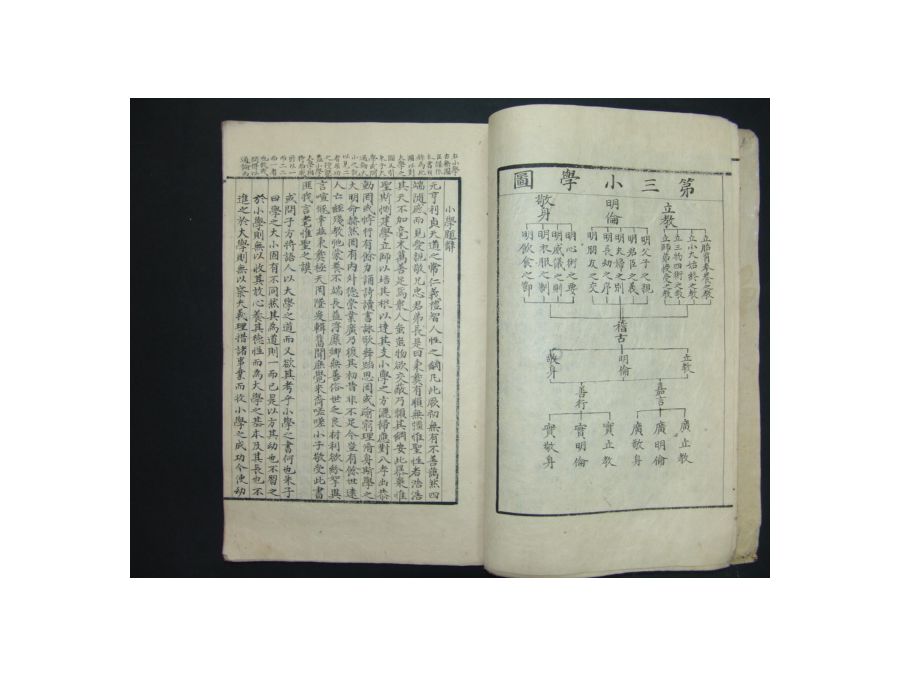 第三小學圖
立教
立胎育保養之教
立小大始終之教
立三物四術之教
立師弟授受之教
明倫
明父子之親
明君臣之義
明夫婦之別
明長幼之序
明朋友之交
敬身
明心術之要
明威儀之則
明衣服之制
明飲食之節
稽古
立教
明倫
敬身
嘉言
善行
廣立教
廣明倫
廣敬身
實立教
實明倫
實敬身
小學題辭
元亨利貞天道之常仁義禮智人性之綱凡此厥初無有不善藹然四
端隨感而見愛親敬兄忠君弟長是曰秉彝有順無彊惟聖性者浩浩
其天不加毫末萬善足焉衆人蚩蚩物欲交蔽乃頹其綱安此暴棄惟
聖斯惻建學立師以培其根以達其支小學之方灑掃應對入孝出恭
動罔或悖行有餘力誦詩讀書詠歌舞蹈思罔或踰窮理脩身斯學之
大明命赫然罔有內外德崇業廣乃復其初昔非不足今豈有餘世遠
人亡經殘教弛蒙養不端長益浮靡鄉無善俗世乏良材利欲紛挐異
言喧豗幸茲秉彝極天罔墜爰輯舊聞庶覺來裔嗟嗟小子敬受此書
匪我言耄惟聖之謨
或問子方將語人以大學之道而又欲其考乎小學之書何也朱子
曰學之大小固有不同然其爲道則一而已是以方其幼也不習之
於小學則無以收其放心養其德性而爲大學之基本及其長也不
進之於大學則無以察夫義理措諸事業而收小學之成功今使幼